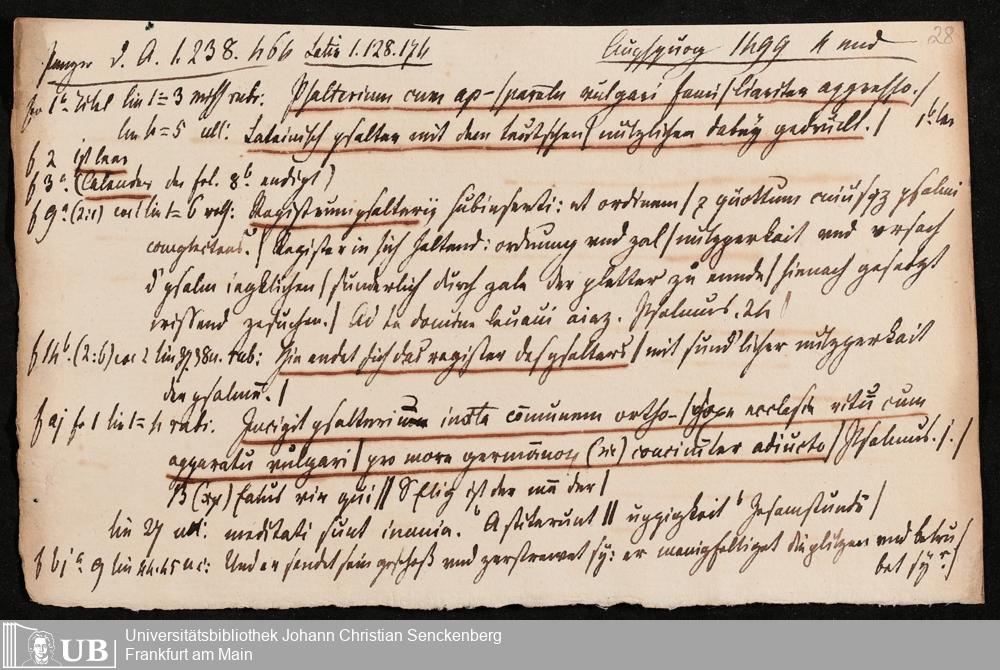 Panzer D. A. 1. 238. 466 Latin 1.128.174 Augspurg 1499 4 und 28
1ᵃ Titel lin 1=3 roth rubr: Psalterium cum ap-/paratu vulgari fami/liariter appresso./
lin 4=5 Lateinisch psalter mit dem teutschen/ nutzlichen dabey gedruckt./ 1ᵇ leer
f 2 ist leer
f 3ᵃ. (Calender der fol. 8ᵇ. endigt)
f 9ᵃ (2:1) col 1 lin 1=6 roth: Registrum psalterij subinserti: ut ordinem/ et quottum cuiusqz psalmi
complectens./ Register in sich haltend: ordnung und zal/ nutzperkait und ursach
psalm ieglichen/ sunderlich durch zale der pletter zu ennde/ hienach gesetzt
wissend zesuchen./ Ad te domine levavi aiaz. Psalmus. 24
f 14ᵇ. (2:6) col 2 lin 38 rub: Hie endet sich das register des psalters/ mit sundlicher nutzperkait
der psalmē./
f aj fo 1 lin 1=4 rubr. Incipit psalterium iuxta cōmunem ortho-/doxe ecclesie ritū cum
apparatu vulgari/ pro more germanoꝝ (sic) conciuiter adiucto/ Psalmus. j./
B (xyl) Eatus vir qui// SElig ist der mā der/
lin 27 meditati sunt inania. ᵇ Astiterunt // uppigkeit ᵇ Zesamstunde/
f bjᵃ 9 lin 44.45 Und er sendet sein geschoß und zerstrewet sy: er manigfaltiget die plitzen und betru/
bet sy./
UB
Universitätsbibliothek Johann Christian Senckenberg
Frankfurt am Main